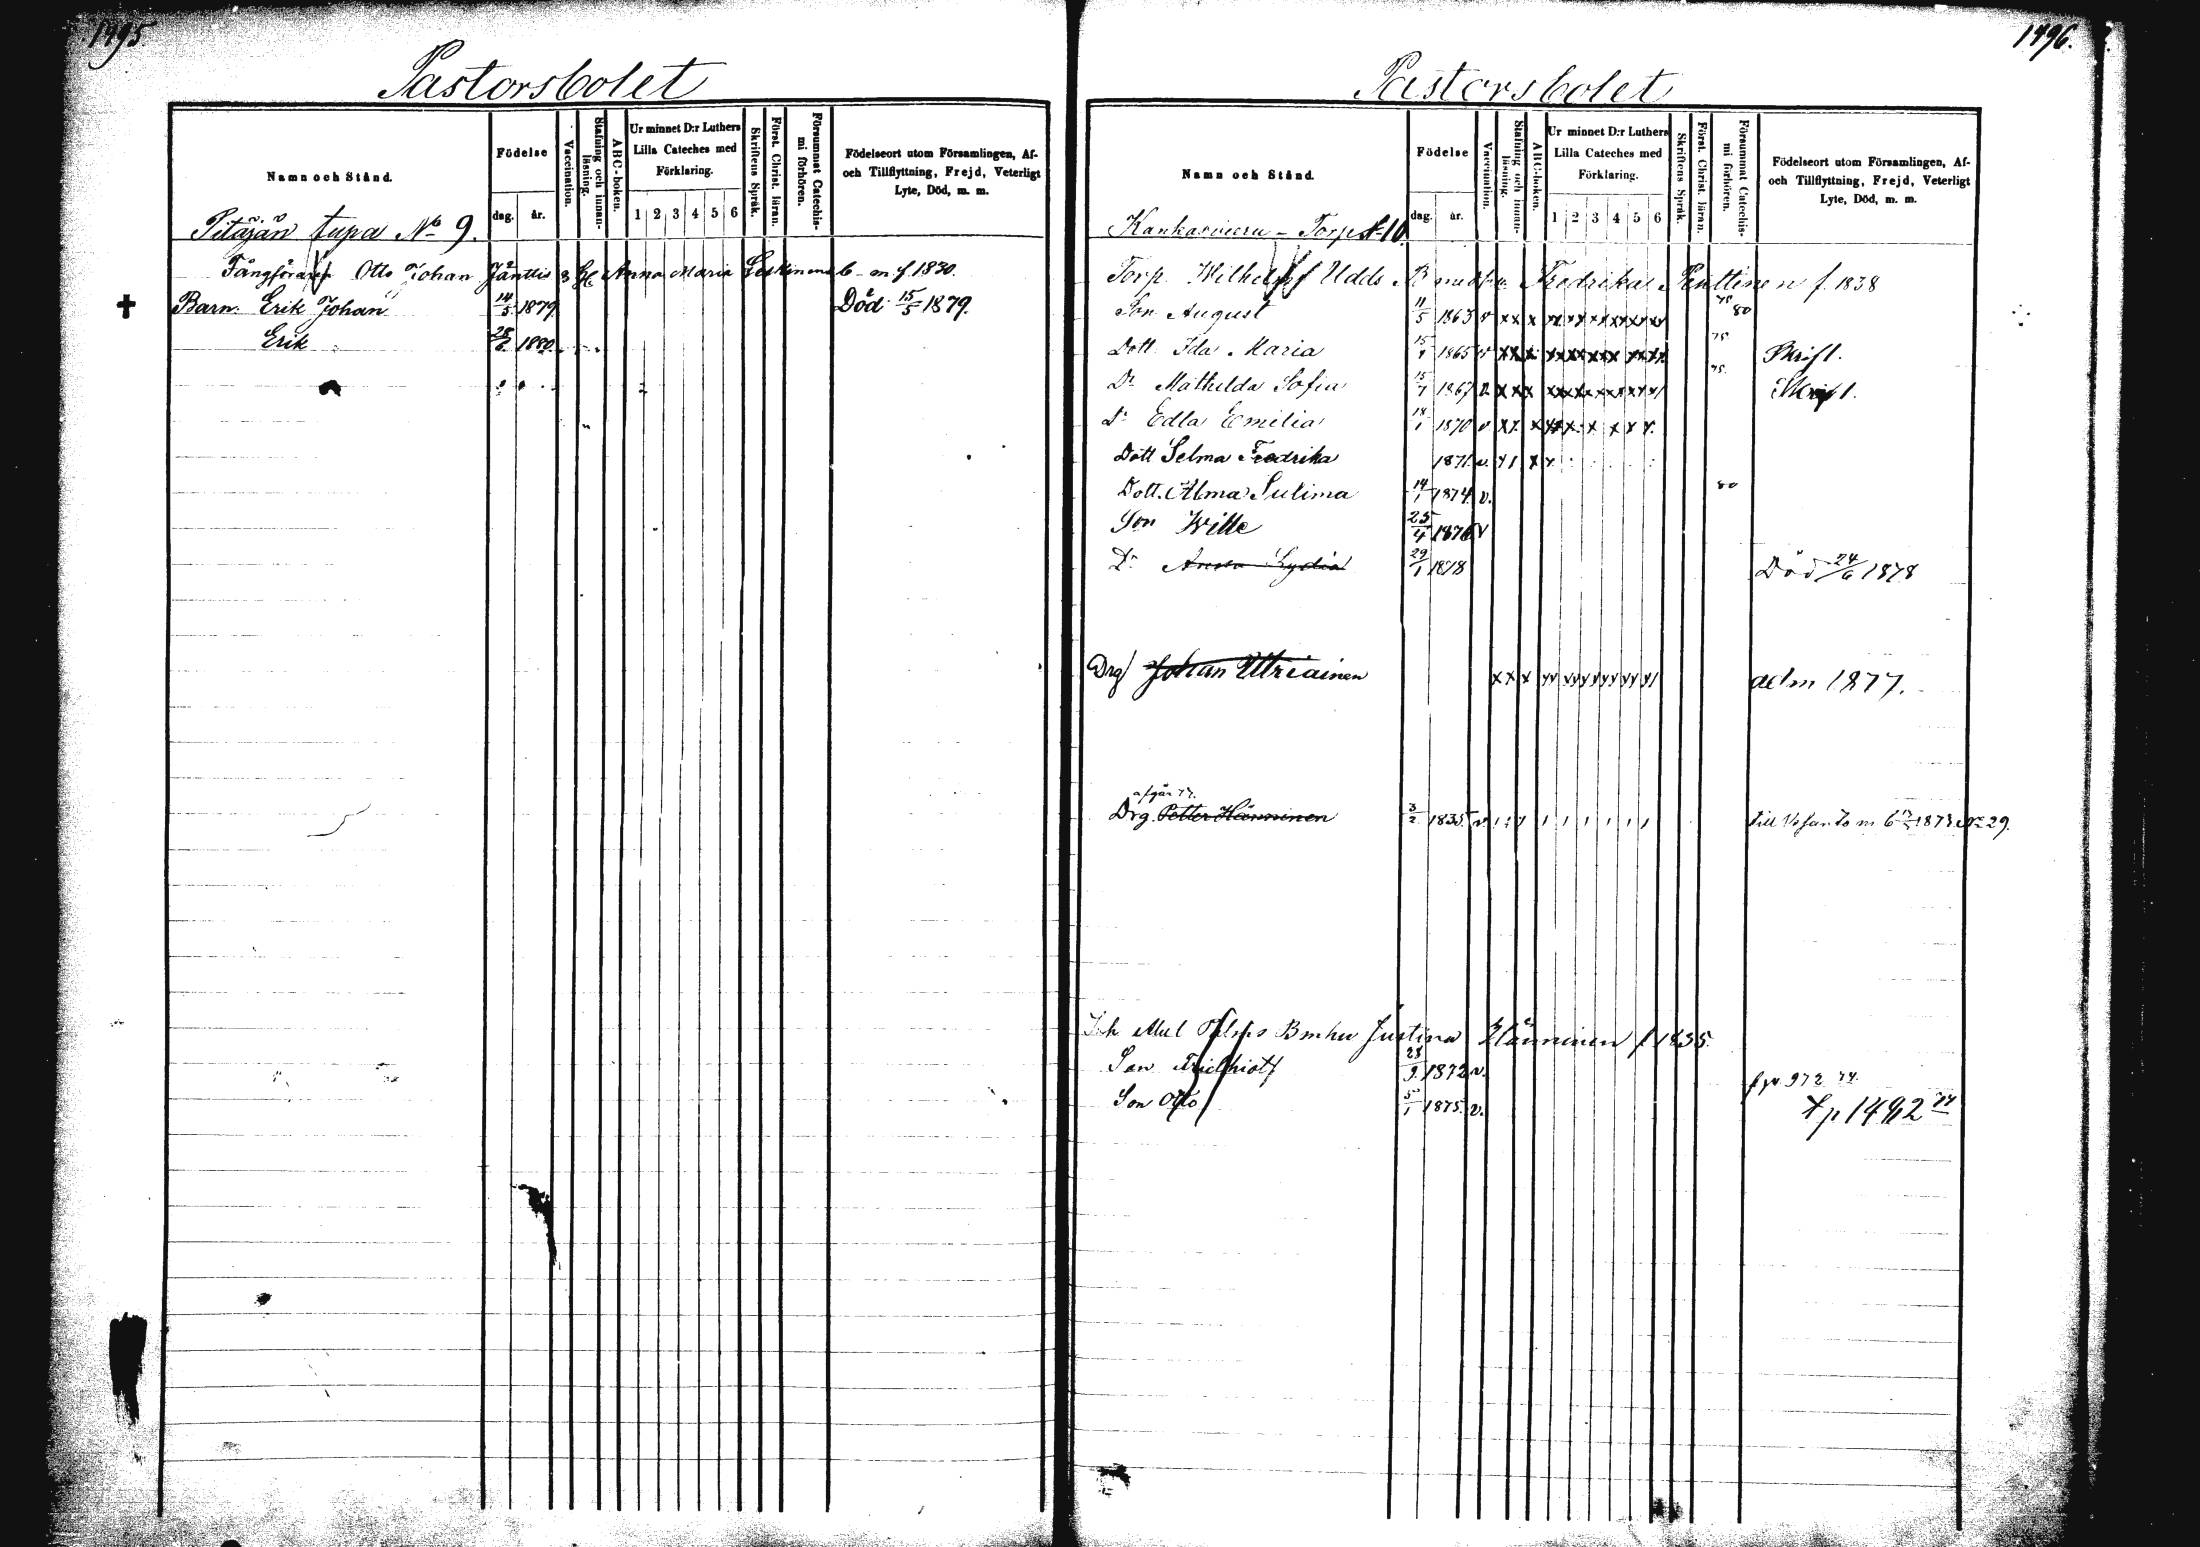 1495.
Pastorsbolet
Namn och Stånd.
Födelse
dag.
år.
Vaccination.
Stafning och innan-
läsning.
ABC-boken.
Ur minnet D:r Luthers
Lilla Cateches med
Förklaring.
1 2 3 4 5 6
Skriftens Språk.
Först. Christ. läran.
Försummat Catechis-
mi förhören.
Födelseort utom Församlingen, Af-
och Tillflyttning, Frejd, Veterligt
Lyte, Död, m. m.
Pitäjän tupa No 9.
Fångföraren Otto Johan Jänttis Anna Maria Leskinens f. 1830.
Barn. Erik Johan 14/5 1879 Död 15/5 1879.
Erik 1880
1496.
Pastorsbolet
Namn och Stånd.
Födelse
dag.
år.
Vaccination.
Stafning och innan-
läsning.
ABC-boken.
Ur minnet D:r Luthers
Lilla Cateches med
Förklaring.
1 2 3 4 5 6
Skriftens Språk.
Först. Christ. läran.
Försummat Catechis-
mi förhören.
Födelseort utom Församlingen, Af-
och Tillflyttning, Frejd, Veterligt
Lyte, Död, m. m.
Torp 10.
Torp. Wilhelm Udds Fredrika Penttinen f. 1838
Son August 11/5 1863 v xx x 80
Dott. Ida Maria 15/1 1865 v xx x
Dr Mathilda Sofia 15/1 1867 v xx x
Dr Edla Emilia 18/1 1870 v xx x
Dott Selma Fredrika 1871 v.
Dott. Alma Sulima 14/1 1874 v. 80
Son Wille 25/4 1876 v
Dr Anna Lydia 29/1 1878 Död 24/6 1878
Drg Johan Utriainen x x x adm 1877.
afgår
Drg. Petter Hänninen 3/2 1835 v till 1873 No 29.
Justina Hänninen f. 1835.
Son Fridthiolf 28/9 1872 v. fr 972 74.
Son Otto 5/1 1875. v. p 1492